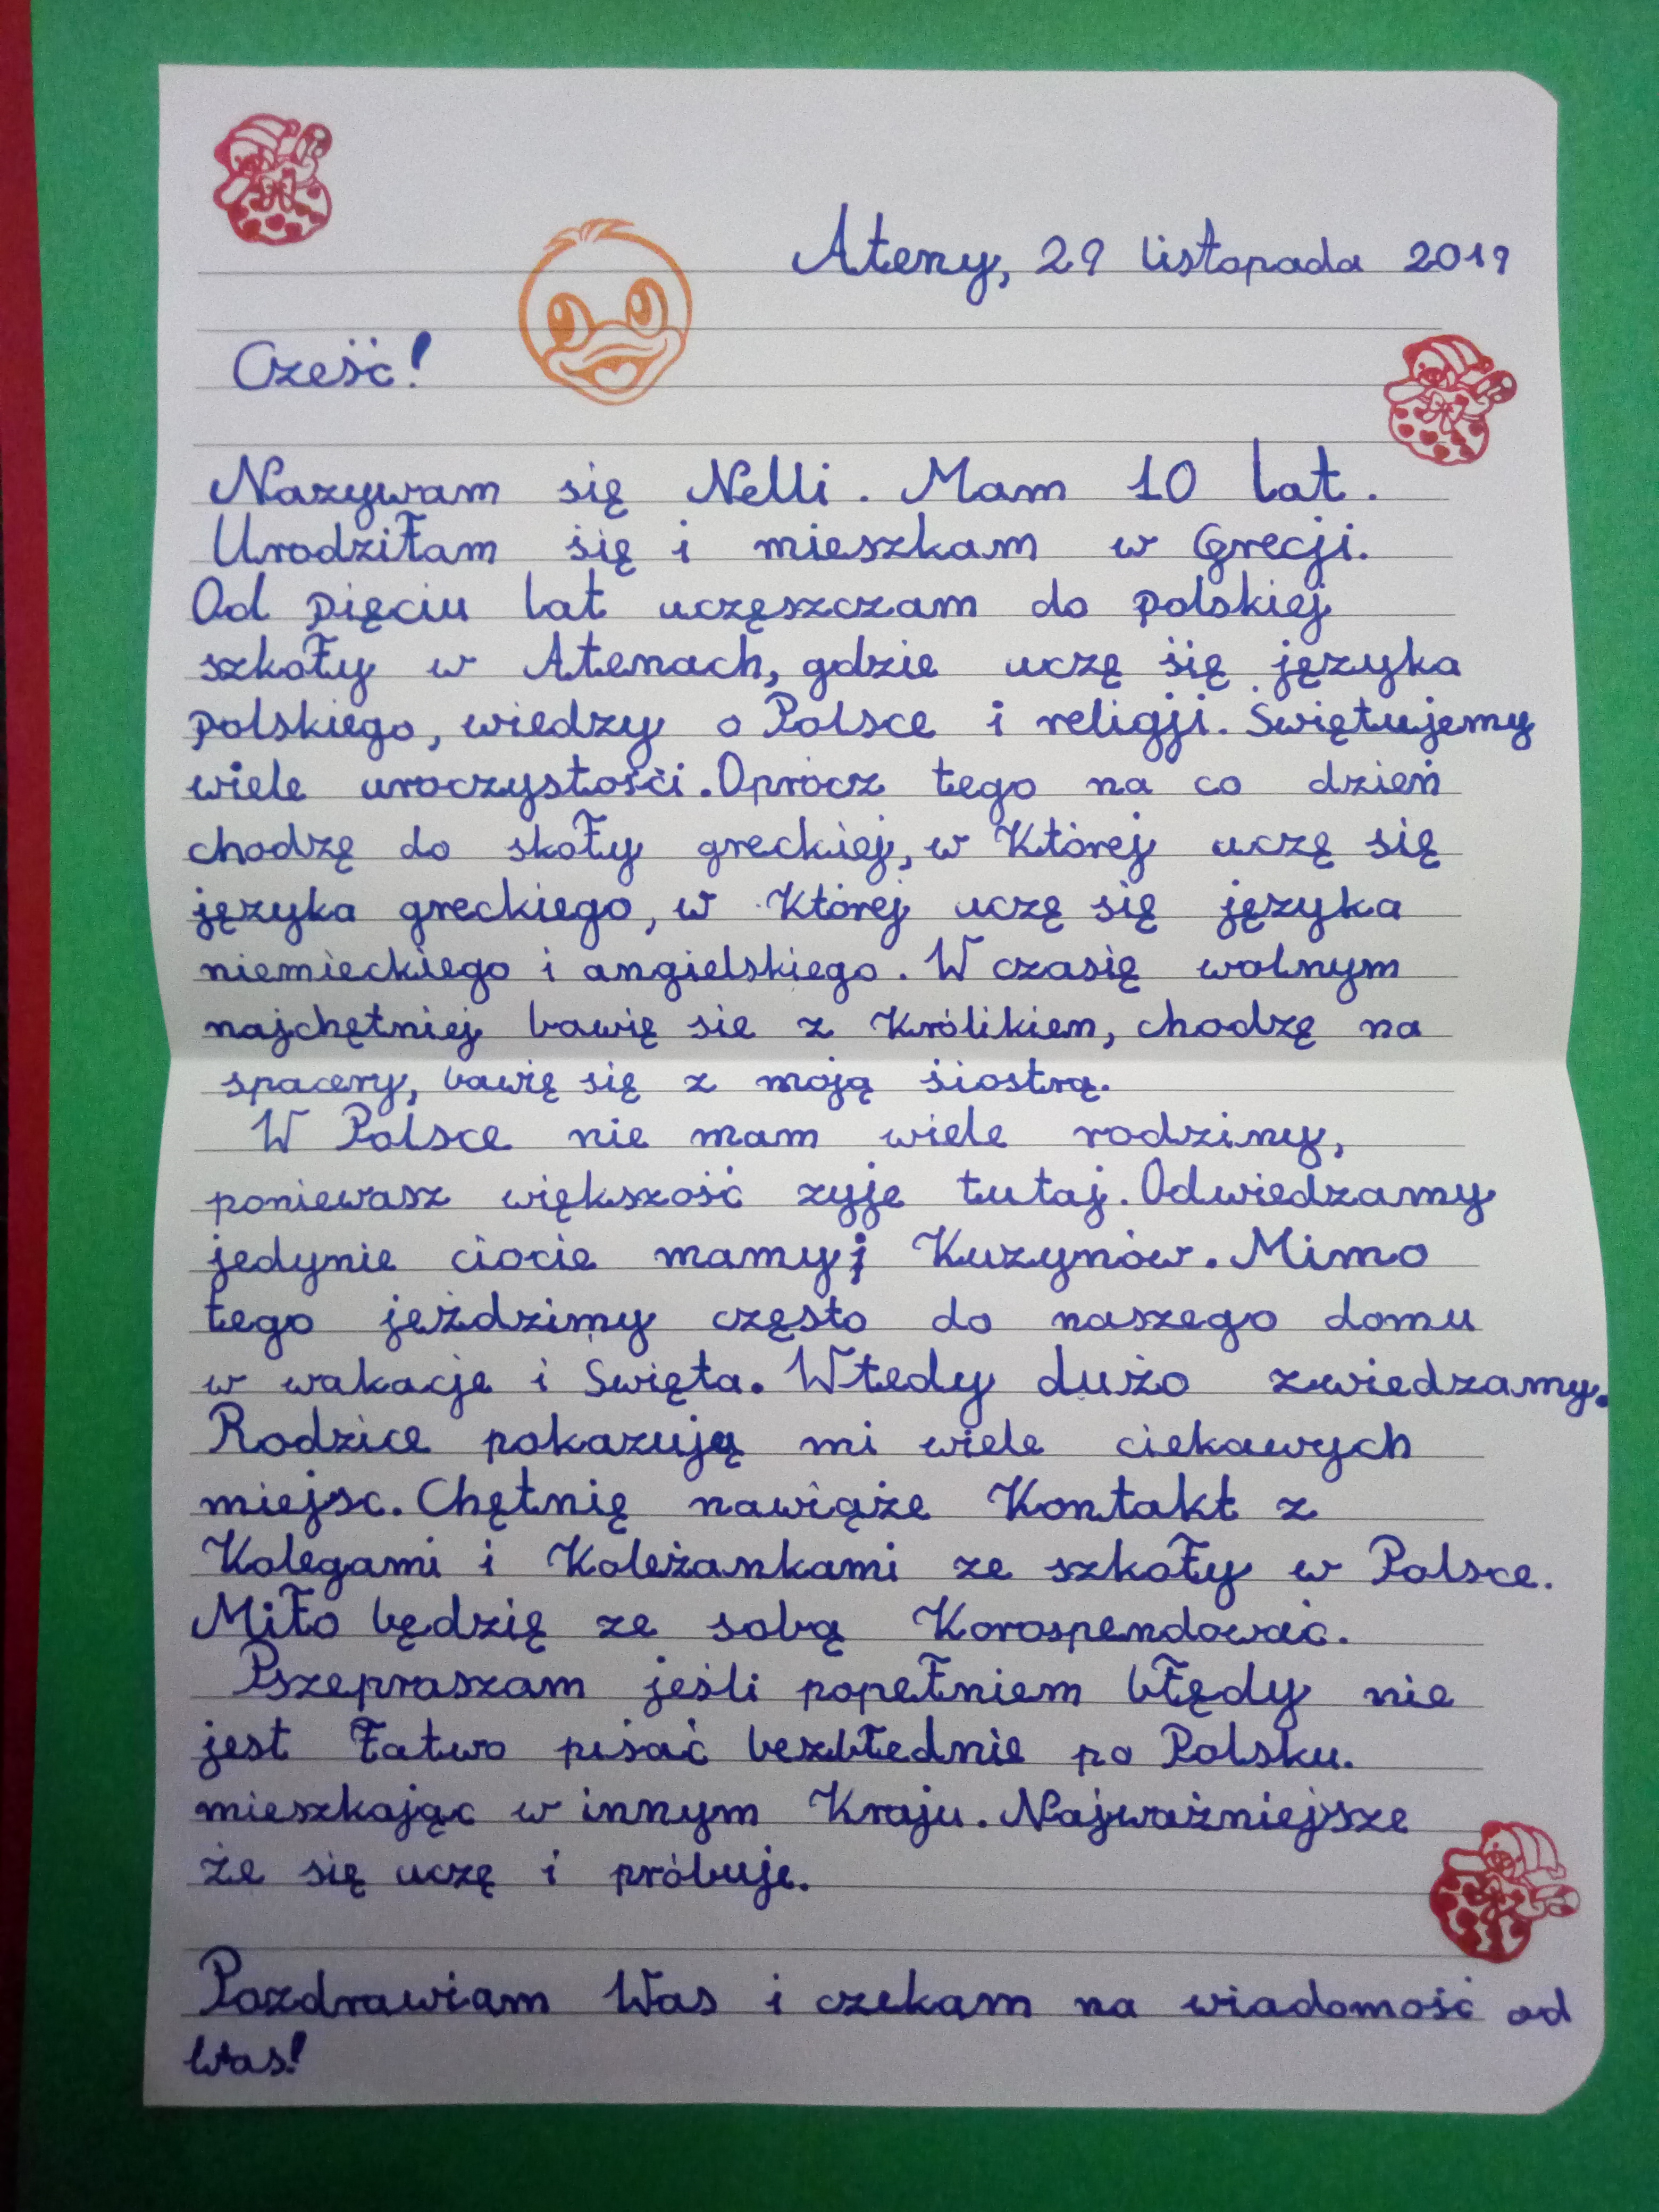 Ateny, 29 listopada 2019
Cześć!
Nazywam się Nelli. Mam 10 lat.
Urodziłam śię i mieszkam w Grecji.
Od pięciu lat uczęszczam do polskiej
szkoły w Atenach, gdzie uczę śię języka
polskiego, wiedzy o Polsce i religji. Świętujemy
wiele uroczystośći. Oprócz tego na co dzień
chodzę do skoły greckiej, w Której uczę się
języka greckiego, w Której uczę się języka
niemieckiego i angielskiego. W czasię wolnym
najchętniej bawię sie z Królikiem, chodzę na
spacery, bawię się z moją śiostrą.
W Polsce nie mam wiele rodziny,
poniewasz większość zyje tutaj. Odwiedzamy
jedynie ciocie mamy i Kuzynów. Mimo
tego jeździmy często do naszego domu
w wakacje i Święta. Wtedy dużo zwiedzamy.
Rodzice pokazują mi wiele ciekawych
miejsc. Chętnię nawiąże Kontakt z
Kolegami i Koleżankami ze szkoły w Polsce.
Miło będzię ze sobą Korospendować.
Pszepraszam jeśli popełniem błędy nie
jest łatwo piśać bezbłednie po Polsku.
mieszkając w innym Kraju. Najważniejsze
że się uczę i próbuje.
Pozdrawiam Was i czekam na wiadomość od
Was!